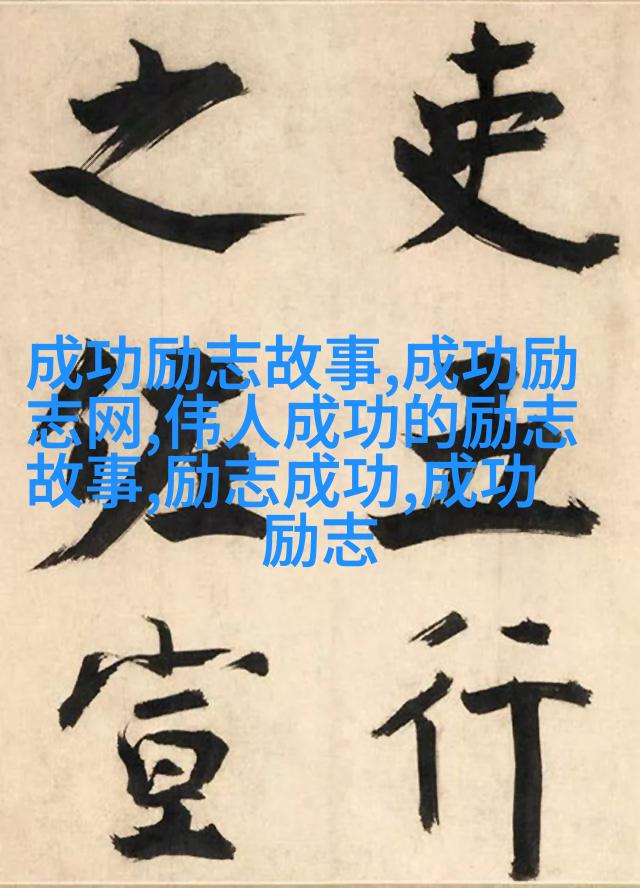 吏五行
之宣
成功励志故事,成功励
志网,伟人成功的励志
故事,励志成功,成功
励志